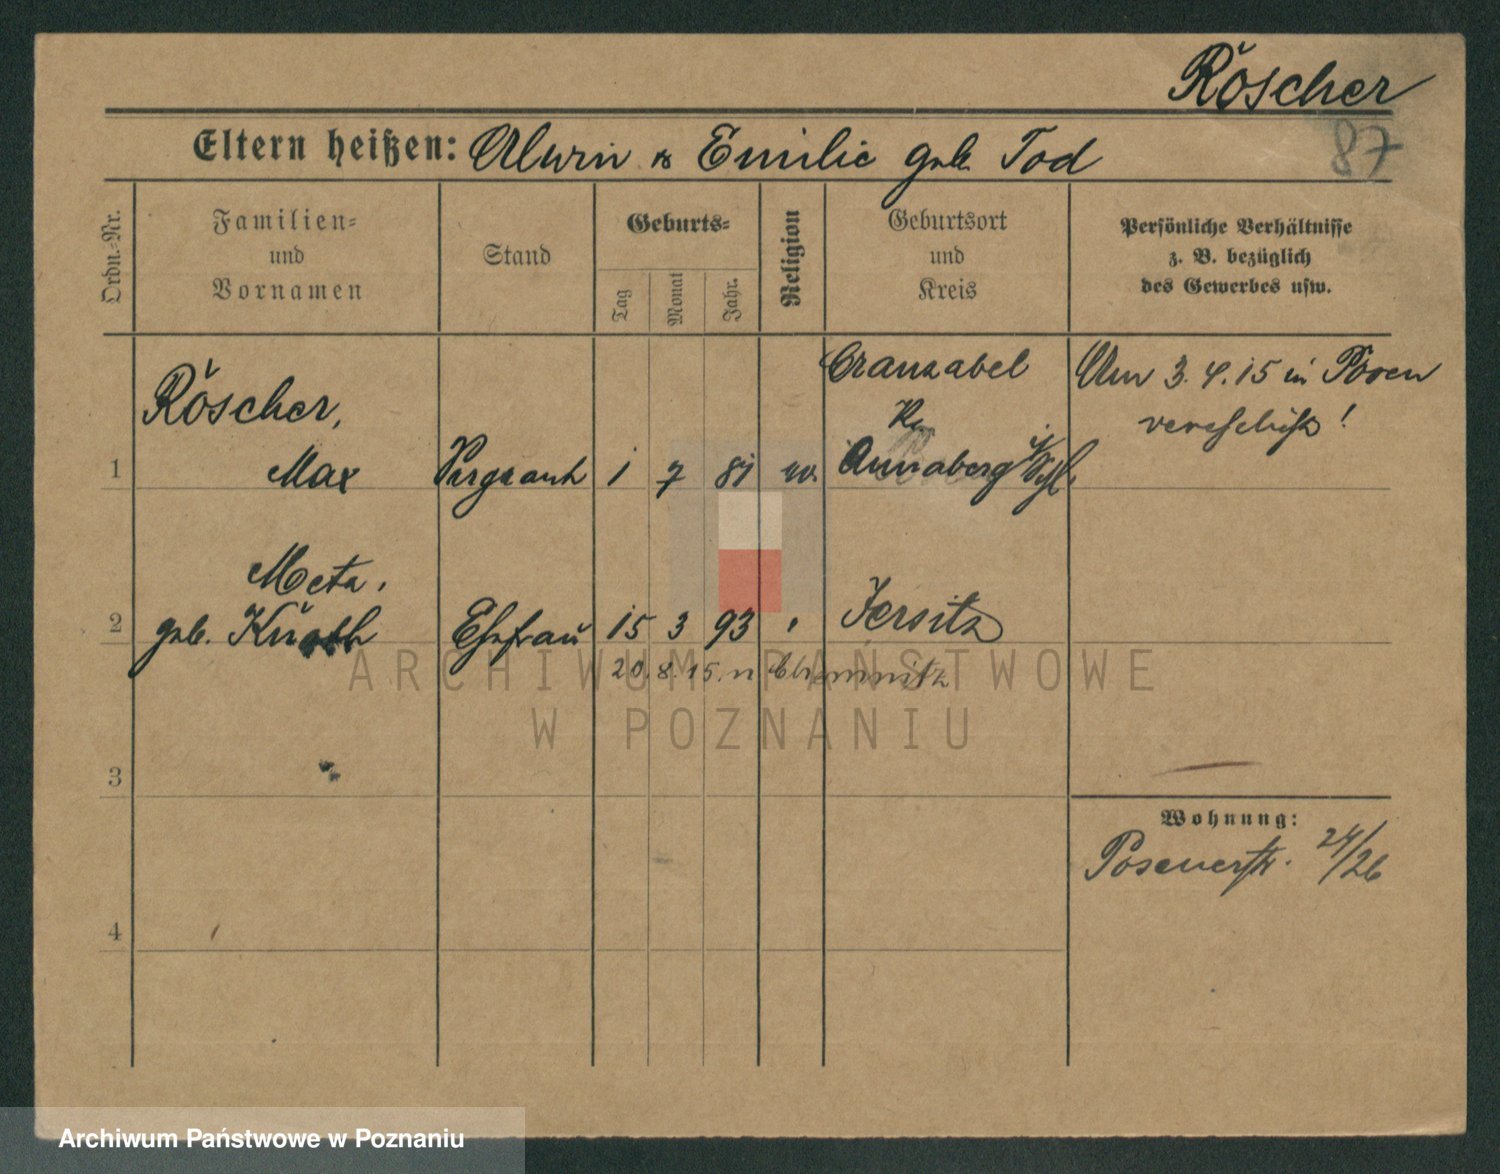 Röscher
87
Eltern heißen: Alwin & Emilie geb. Tod
Ordn.-Nr.
Familien- und Vornamen
Stand
Geburts-
Tag
Monat
Jahr.
Religion
Geburtsort und Kreis
Persönliche Verhältnisse z. B. bezüglich des Gewerbes usw.
Röscher,
Cranzabel
Am 3.4.15 in Posen
Kr.
1 Max 1 7 81 ev. Annaberg
Meta,
2 geb. Ehefrau 15 3 93 Jersitz
20.8.15. n Chemnitz
3
4
Wohnung:
Posenerstr. 24/26
ARCHIWUM PAŃSTWOWE
W POZNANIU
Archiwum Państwowe w Poznaniu